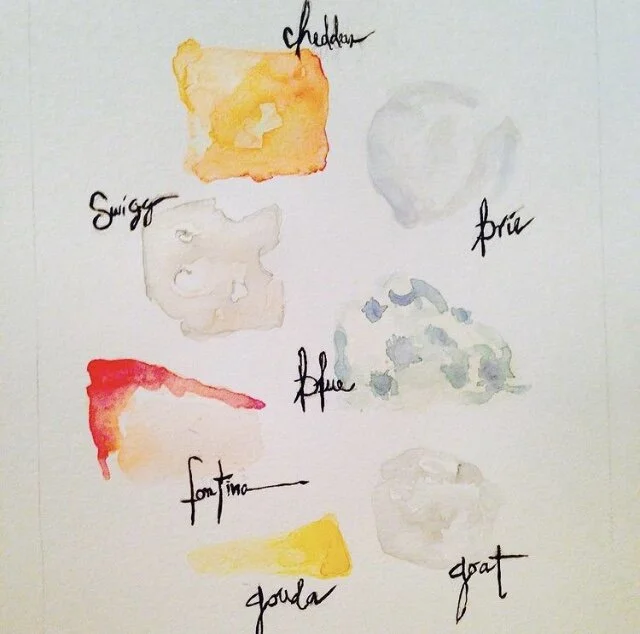 cheddar
Swiss
Brie
Blue
fontina
gouda
goat